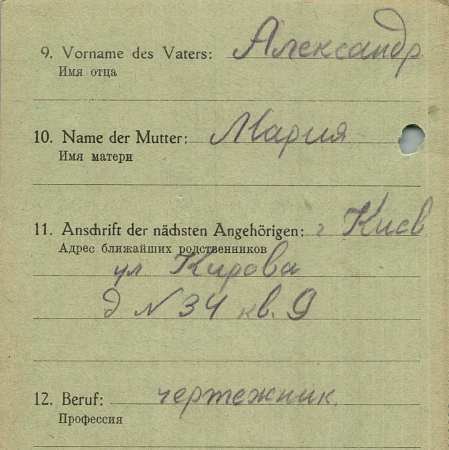 9. Vorname des Vaters: Александр
Имя отца
10. Name der Mutter: Мария
Имя матери
11. Anschrift der nächsten Angehörigen: г Киев
Адрес ближайших родственников
ул. Кирова
д N 34 кв. 9
12. Beruf: чертежник.
Профессия